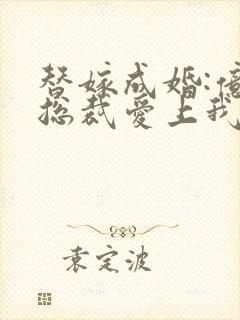 替嫁成婚:亿
总裁爱上我
袁定波